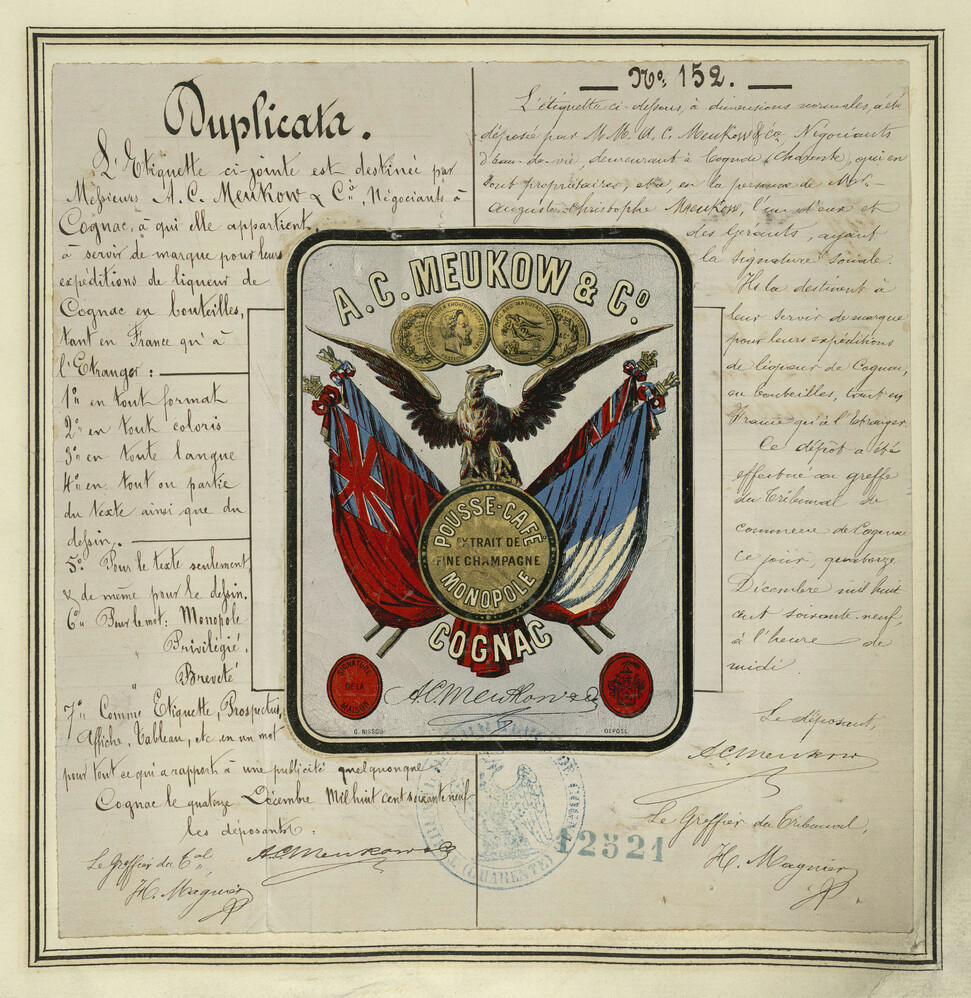 Duplicata.
L'Etiquette ci-jointe est destinée par
Messieurs A. C. Meukow & Co, Négociants à
Cognac, à qui elle appartient
à servir de marque pour leurs
expéditions de liqueur de
Cognac en bouteilles,
tant en France qu'à
l'Etranger :
1o en tout format
2o en tout coloris
3o en toute langue
4o en tout ou partie
du texte ainsi que du
dessin,
5o Pour le texte seulement
& de même pour le dessin.
6o Pour le mot : Monopole
Privilégié
" Breveté
7o Comme Etiquette, Prospectus,
Affiche, Tableau, etc. en un mot
pour tout ce qui a rapport à une publicité quelquonque
Cognac le quatorze Décembre Mil huit cent soixante neuf
les déposants :
Le Greffier du Tal
A.C. Meukow & Co
H. Magnier
A. C. MEUKOW & Co.
POUSSE-CAFÉ
EXTRAIT DE
FINE CHAMPAGNE
MONOPOLE
COGNAC
SIGNATURE
DE LA
MAISON
A.C. Meukow & Co
G. NISSOU
DÉPOSÉ
No. 152.
L'étiquette ci-dessus, à dimensions normales, a été
déposée par M.M. A. C. Meukow & Co Négociants
d'eau-de-vie, demeurant à Cognac (Charente), qui en
sont propriétaires, et a, en la personne de Mr.
Auguste-Christophe Meukow, l'un d'eux et
des Gérants, ayant
la signature sociale.
Ils la destinent à
leur servir de marque
pour leurs expéditions
de liqueur de Cognac,
en bouteilles, tant en
France qu'à l'étranger
Ce dépôt a été
effectué au greffe
du Tribunal de
commerce de Cognac
ce jour, quatorze
Décembre mil huit
cent soixante-neuf,
à l'heure de
midi.
Le déposant,
A.C. Meukow
Le Greffier du Tribunal,
H. Magnier
(CHARENTE)
12521